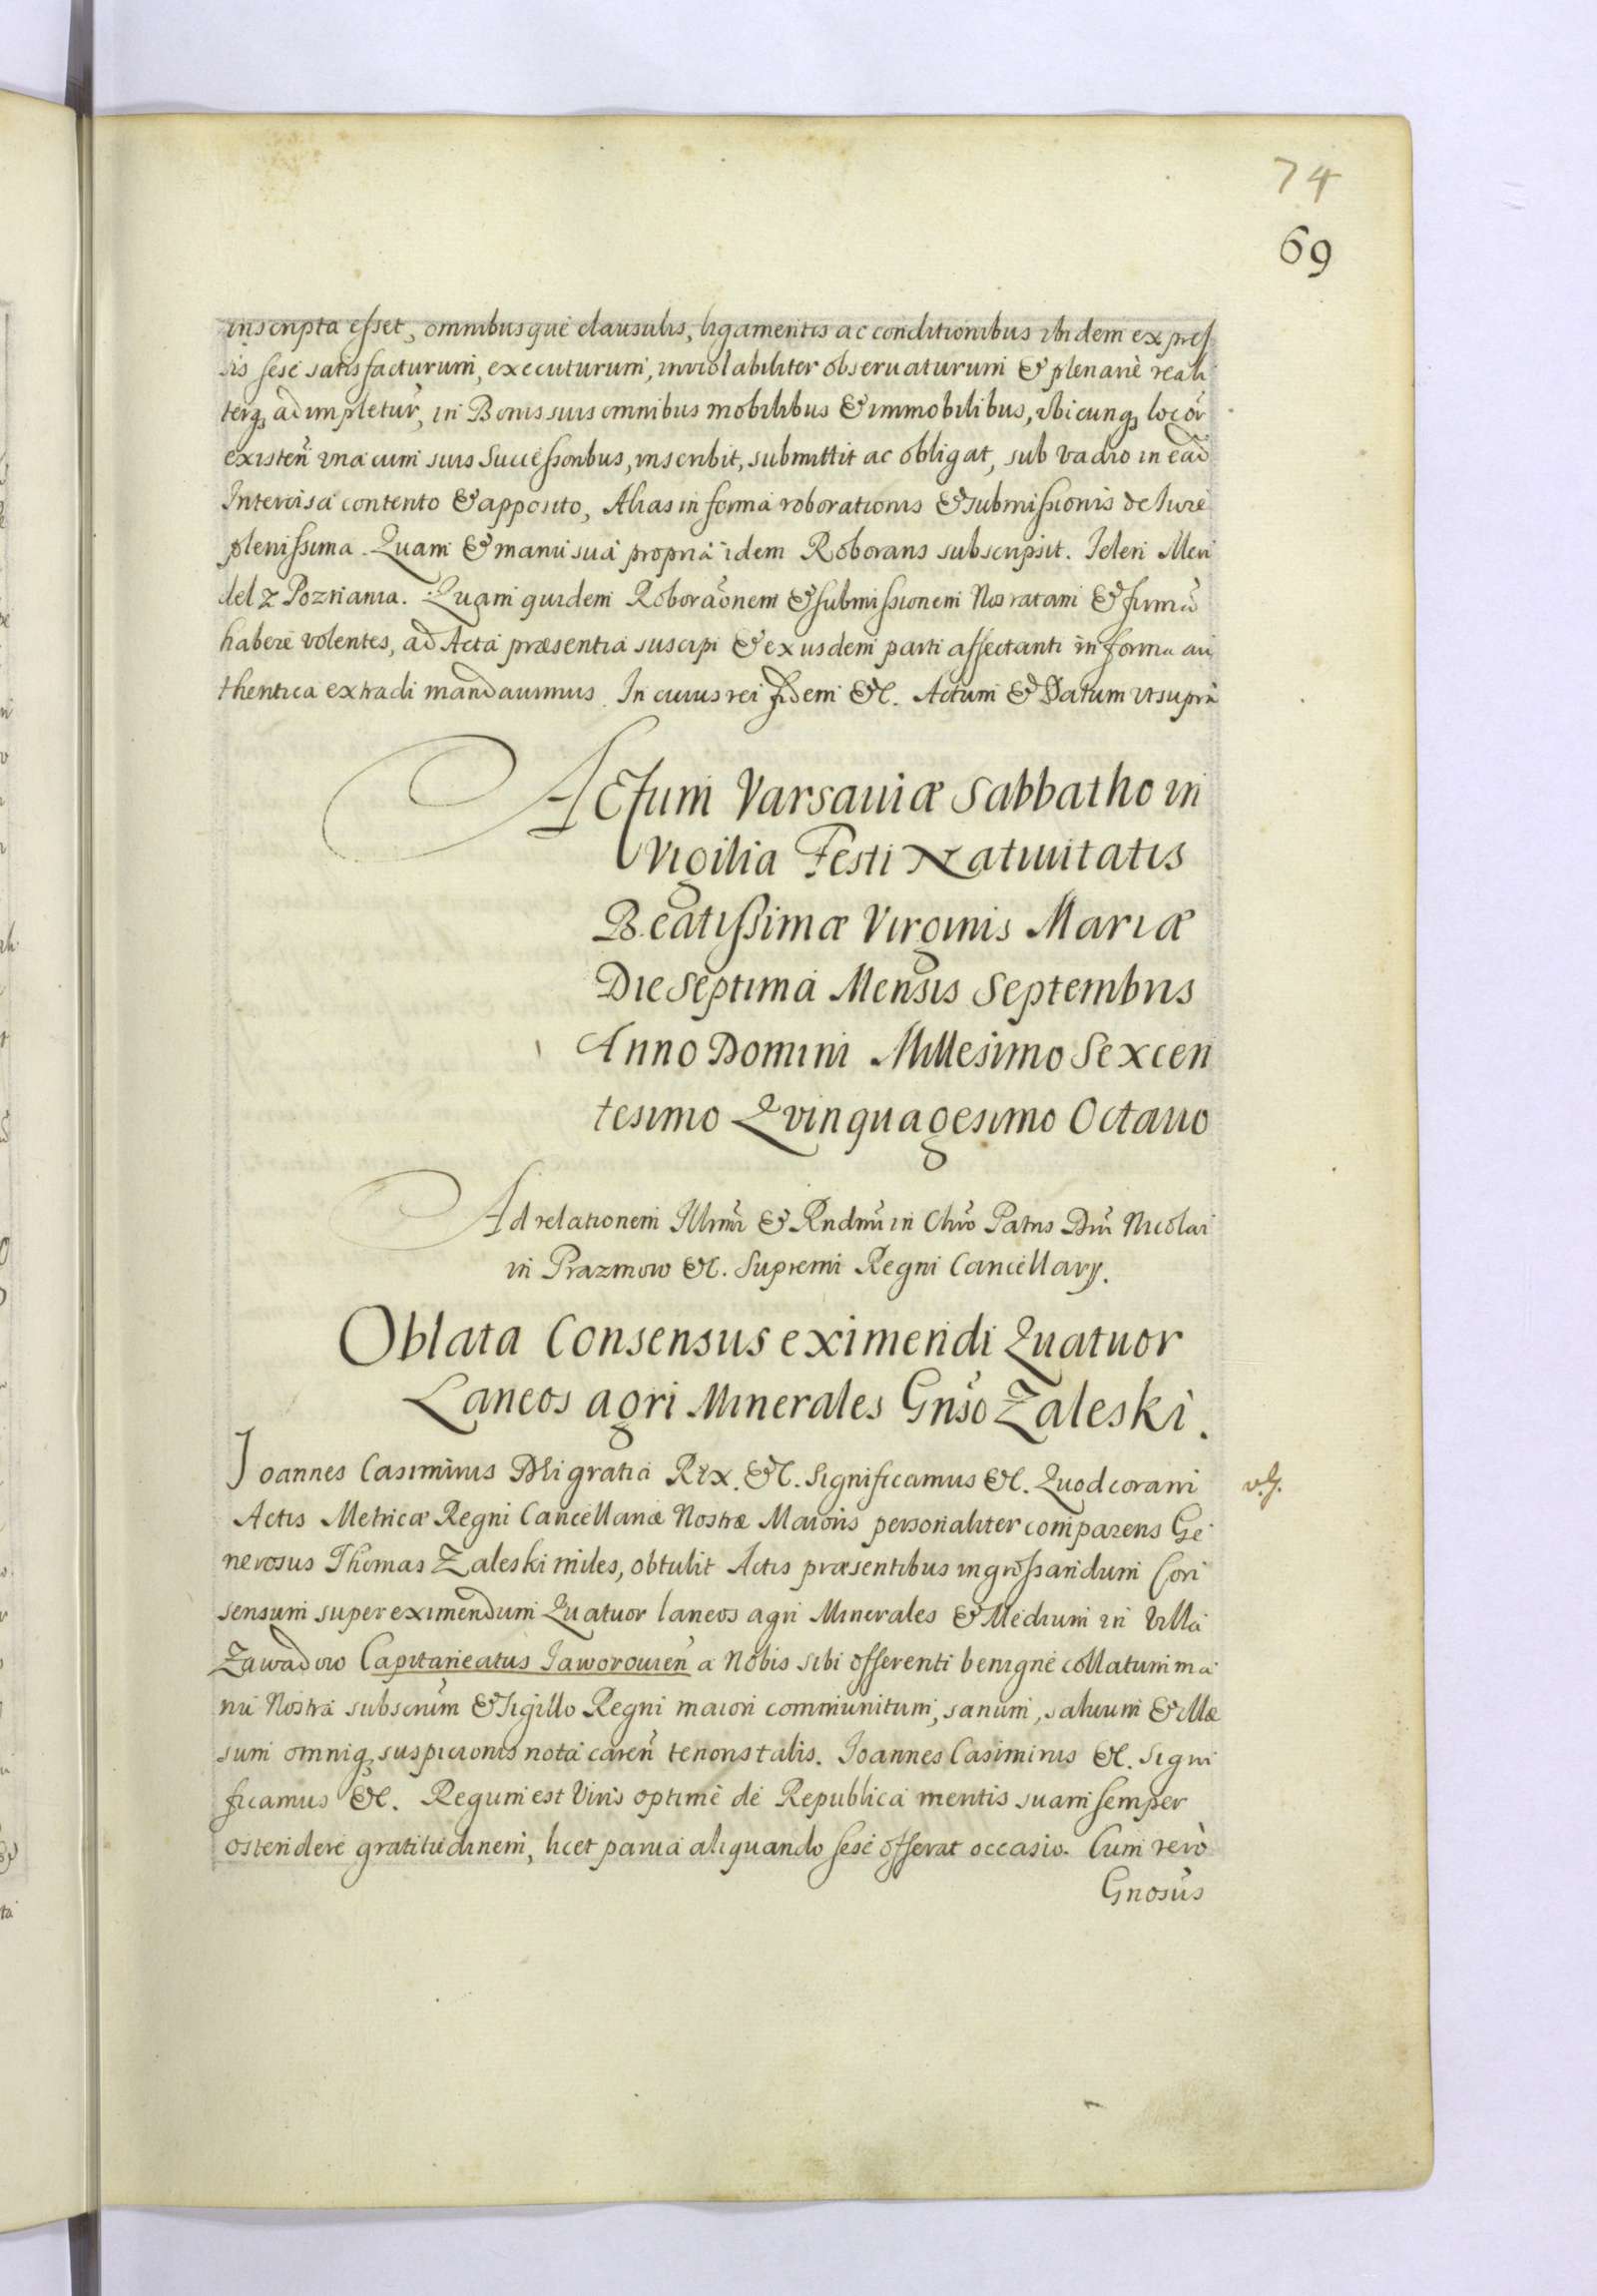 74
69
inscripta esset, omnibusque clausulis, ligamentis ac conditionibus ibidem expres
sis sese satisfacturum, executurum, inviolabiliter obseruaturum & plenarie reali
terq3 adimpletur̃, in Bonis suis omnibus mobilibus & immobilibus, vbicunq3 locor̃
existen̄ vna cum suis Successoribus, inscribit, submittit ac obligat, sub vadio in ead̃
Intercisa contento & apposito, Alias in forma roborationis & submissionis de Iure
plenissima. Quam & manu sua propria idem Roborans subscripsit. Jelen Men
del z Poznania. Quam quidem Roborãonem & submissionem Nos ratam & firmã
habere volentes, ad Acta præsentia suscipi & exusdem parti affectanti in forma au
thentica extradi mandauimus. In cuius rei fidem &c. Actum & Datum vt supra
Actum Varsauiæ Sabbatho in
Vigilia Festi Natiuitatis
Beatissimæ Virginis Mariæ
Die Septima Mensis Septembris
Anno Domini Millesimo Sexcen
tesimo Qvinquagesimo Octauo
Ad relationem Illmi & Rndmi in Chro Patris Dni Nicolai
in Prazmow &c. Supremi Regni Cancellarij.
Oblata Consensus eximendi Quatuor
Laneos agri Minerales Gnso Zaleski.
Joannes Casimirus Dei gratia Rex. &c. Significamus &c. Quod coram
v.g.
Actis Metricæ Regni Cancellariæ Nostræ Maioris personaliter comparens Ge
nerosus Thomas Zaleski miles, obtulit Actis præsentibus ingrossandum Con
sensum super eximendum Quatuor laneos agri Minerales & Medium in Villa
Zawadow Capitaneatus Jaworouien̄ a Nobis sibi offerenti benigne collatum ma
nu Nostra subscrim̃ & Sigillo Regni maiori communitum, sanum, saluum & illæ
sum omniq3 suspicionis nota caren̄ tenoris talis. Joannes Casimirus &c. Signi
ficamus &c. Regum est Viris optime de Republica meritis suam semper
ostendere gratitudinem, licet parua aliquando sese offerat occasio. Cum vero
Gnosus